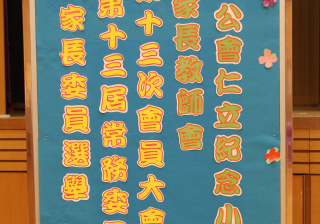 公會仁立紀念小
家長教師會
十三次會員大會
第十三屆常務委員
家長委員選舉